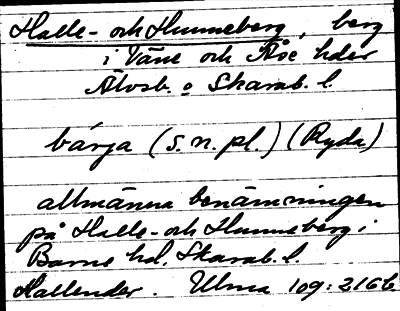 Halle- och Hunneberg, berg
i Väne och Åse hder
Älvsb. o Skarab. l.
bárga (s. n. pl.) (Ryda)
allmänna benämningen
på Halle- och Hunneberg i
Barne hd. Skarab. l.
Hallender. Ulma 109: 216 b.